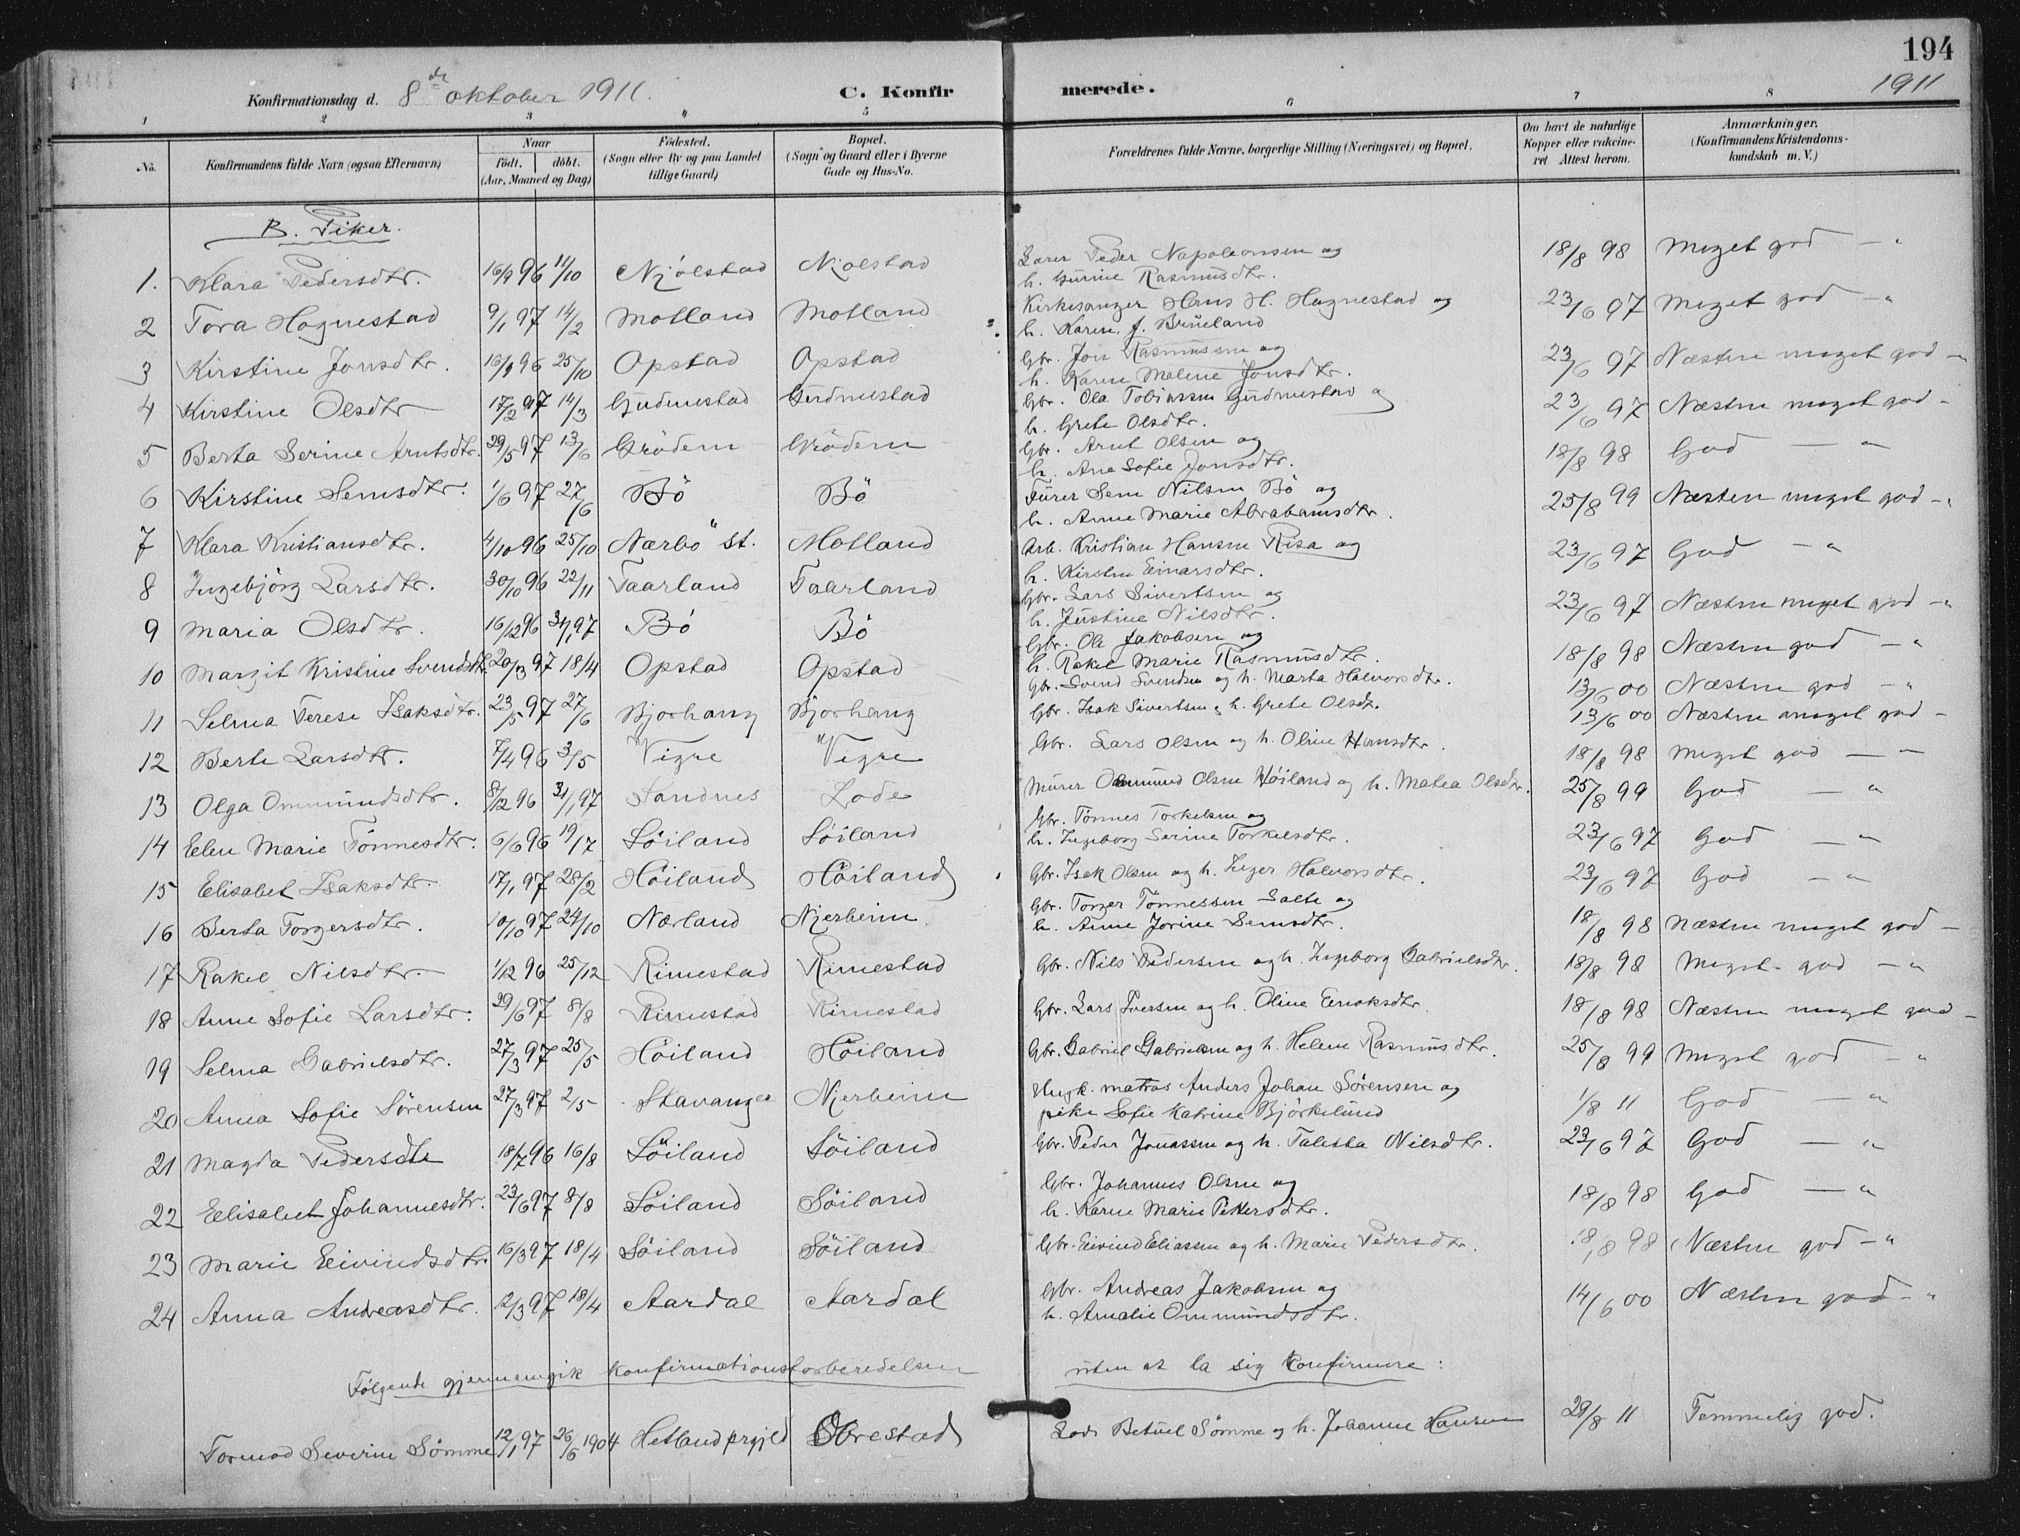 194
Konfirmationsdag d. 8de oktober 1911. C. Konfirmerede. 1911
1 2 3 4 5 6 7 8
No. Konfirmandens fulde Navn (ogsaa Efternavn) Naar født. døbt. (Aar, Maaned og Dag) Fødested. (Sogn eller By og paa Landet tillige Gaard) Bopæl. (Sogn og Gaard eller i Byerne Gade og Hus-No. Forældrenes fulde Navne, borgerlige Stilling (Næringsvei) og Bopæl. Om havt de naturlige Kopper eller vakcineret Attest herom. Anmærkninger. (Konfirmandens Kristendomskundskab m. V.)
B. Piker.
1. Klara Pedersdtr. 16/9 96 11/10 Njølstad Njølstad Lærer Peder Napoleonsen og h. Gurine Rasmusdtr. 18/8 98 Meget god — "
2 Tora Hognestad 9/1 97 14/2 Motland Motland Kirkesanger Hans H. Hognestad og h. Karen f. Brüeland 23/6 97 Meget god — "
3 Kirstine Jonsdtr. 16/9 96 25/10 Opstad Opstad Gbr. Jon Rasmussen og h. Karen Malene Jonsdtr. 23/6 97 Næsten meget god — "
4 Kirstine Olsdtr 17/2 97 14/3 Gudmestad Gudmestad Gbr. Ola Tobiassen Gudmestad og h. Grete Olsdtr. 23/6 97 Næsten meget god -
5 Berta Serine Arntsdtr. 29/5 97 13/6 Grødem Grødem Gbr. Arnt Olsen og h. Ane Sofie Jonsdtr. 18/8 98 God — "
6 Kirstine Semsdtr. 1/6 97 27/6 Bö Bö Furer Sem Nilsen Bö og h. Anne Marie Abrahamsdtr. 25/8 99 Næsten meget god - "
7 Klara Kristiansdtr. 4/10 96 25/10 Nærbö st. Motland Arb. Kristian Hansen Risa og h. Kirsten Einarsdtr. 23/6 97 God — "
8 Ingebjörg Larsdtr. 30/10 96 22/11 Taarland Taarland Gbr. Lars Sivertsen og h. Justine Nilsdtr. 23/6 97 Næsten meget god — "
9 Maria Olsdtr. 16/12 96 31/1 97 Bö Bö Gbr. Ole Jakobsen og h. Rakel Marie Rasmusdtr. 18/8 98 Næsten god — "
10 Margit Kristine Svendsdtr 20/3 97 18/4 Opstad Opstad Gbr. Svend Svendsen og h. Marta Halvorsdtr. 13/6 00 Næsten god — "
11 Selma Terese Isaksdtr. 23/5 97 27/6 Bjorhaug Bjorhaug Gbr. Isak Sivertsen & h. Grete Olsdtr. 13/6 00 Næsten meget god -
12 Berte Larsdtr. 7/4 96 3/5 Vigre Vigre Gbr. Lars Olsen og h. Oline Hansdtr. 18/8 98 Meget god — "
13 Olga Ommundsdtr. 8/12 96 31/1 97 Sandnes Lode Murer Ommund Olsen Höiland og h. Matea Olsdtr. 25/8 99 God — "
14 Elen Marie Tönnesdtr. 6/6 96 19/7 Söiland Söiland Gbr. Tönnes Torkelsen og h. Ingeborg Serine Torkelsdtr. 23/6 97 God — "
15 Elisabet Isaksdtr. 17/1 97 28/2 Höiland Höiland Gbr. Isak Olsen og h. Inger Halvorsdtr. 23/6 97 God — "
16 Berta Torgersdtr. 10/10 97 24/10 Nærland Njerheim Gbr. Torger Tönnessen Salte og h. Anne Jorine Semsdtr. 18/8 98 Næsten meget god —
17 Rakel Nilsdtr. 1/12 96 25/12 Rimestad Rimestad Gbr. Nils Pedersen og h. Ingeborg Gabrielsdtr. 18/8 98 Meget god — "
18 Anne Sofie Larsdtr. 29/6 97 8/8 Rimestad Rimestad Gbr. Lars Iversen og h. Oline Eriksdtr 18/8 98 Næsten meget god -
19 Selma Gabrielsdtr. 27/3 97 25/5 Höiland Höiland Gbr. Gabriel Gabrielsen og h. Helene Rasmusdtr. 25/8 99 Meget god — "
20 Anna Sofie Sörensen 27/3 97 2/5 Stavanger Njerheim Ungk. matros Anders Johan Sörensen og pike Sofie Katrine Björkelund 1/8 11 God — "
21 Magda Pedersdtr 18/7 96 16/8 Söiland Söiland Gbr. Peder Jonassen og h. Taletta Nilsdtr. 23/6 97 God — "
22 Elisabet Johannesdtr. 23/6 97 8/8 Söiland Söiland Gbr. Johannes Olsen og h. Karen Marie Pettersdtr. 18/8 98 God — "
23 Marie Eivindsdtr. 16/3 97 18/4 Söiland Söiland Gbr. Eivind Eliassen og h. Marie Pedersdtr. 18/8 98 Næsten god - "
24 Anna Andreasdtr. 12/3 97 18/4 Aardal Aardal Gbr. Andreas Jakobsen og h. Amalie Ommundsdtr. 14/6 00 Næsten god - "
Følgende gjennemgik konfirmationsforberedelsen uten at la sig konfirmere:
Tormod Severin Sømme 12/1 97 26/6 1904 Hetland prgjld Obrestad Lods Betuel Sömme og h. Johanne Hansen 29/8 11 Temmelig god.